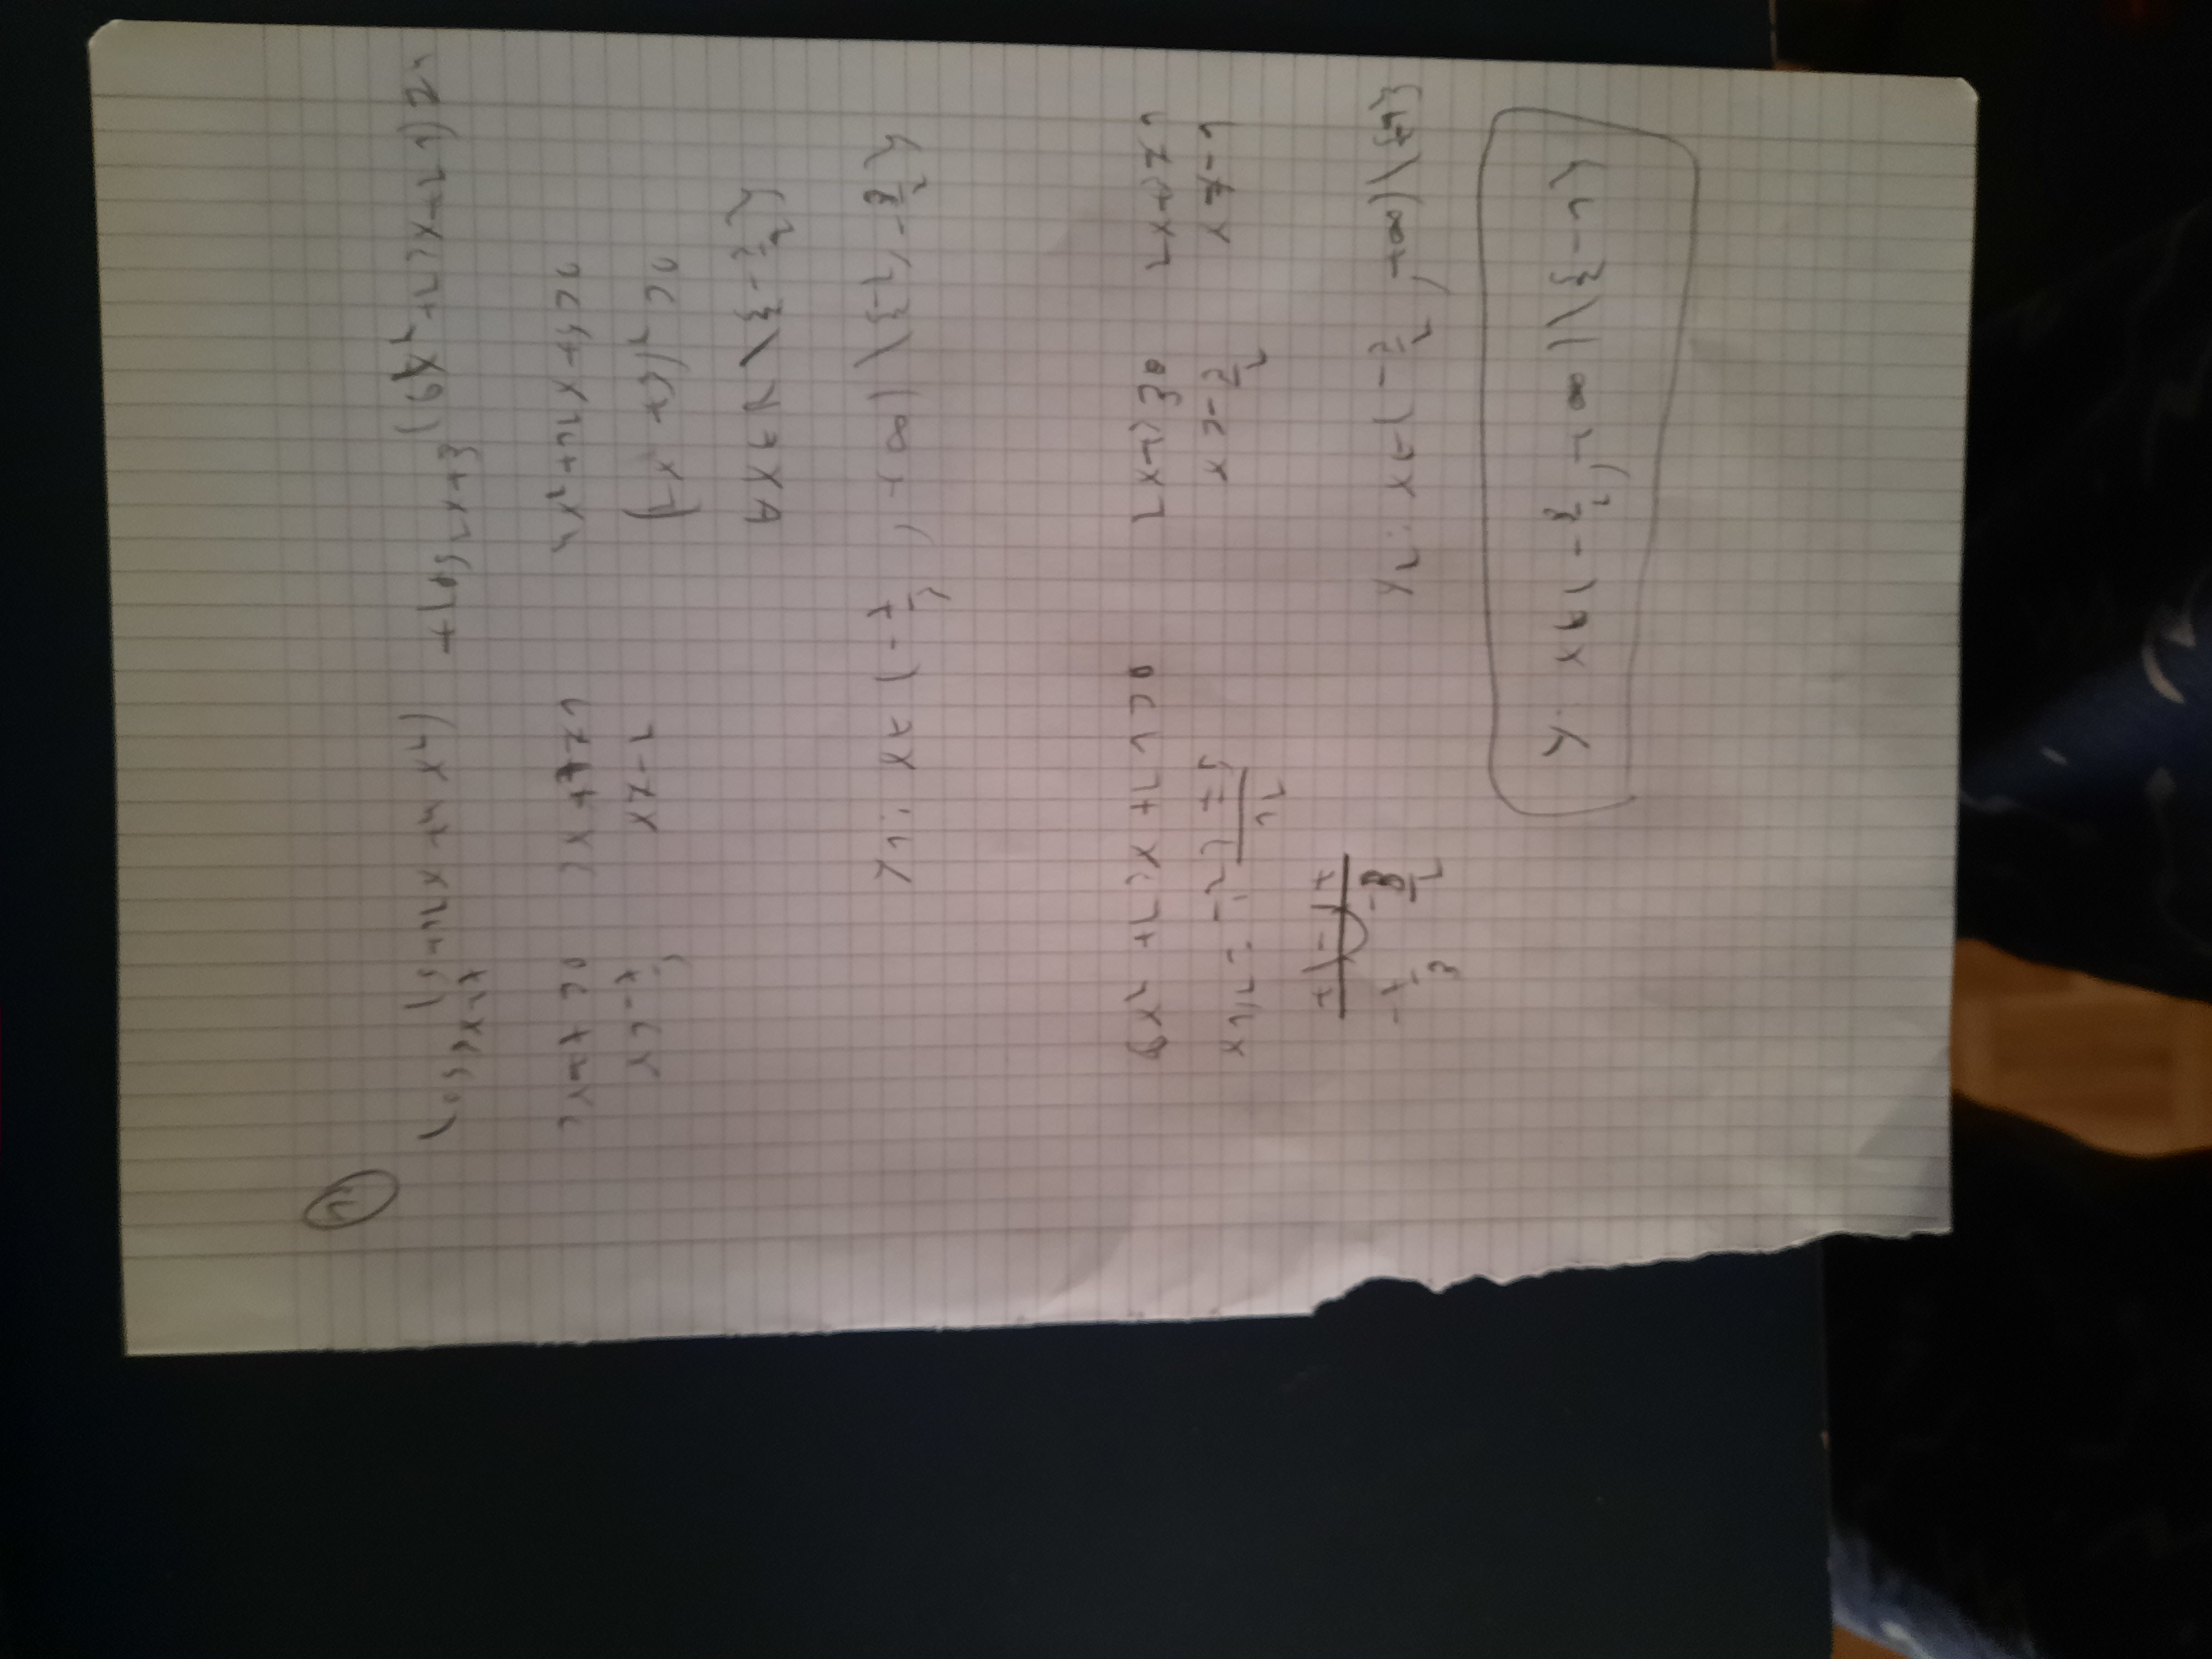 log₃ₓ₊₇(9+12x+4x²) + log₂ₓ₊₃(6x²+23x+21)=4
3x+7>0 3x+7≠1 4x²+12x+9>0
x>-7/3 x≠-2 (2x+3)²>0
∀x∈R\{-3/2}
Y1: x∈(-7/3, +∞)\{-2, -3/2}
6x²+23x+21>0 2x+3>0 2x+3≠1
x1,2 = -23±5/12 x>-3/2 x≠-1
+ - +
-7/3 -3/2 Y2: x∈(-3/2, +∞)\{-1}
Y: x∈(-3/2, +∞)\{-1}